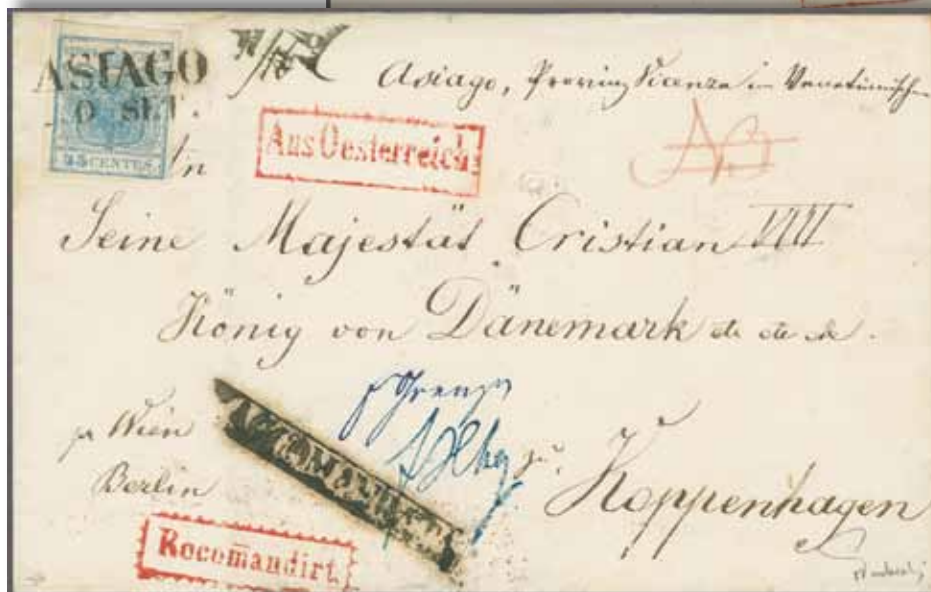 ASIAGO
SET.
45 CENTES.
Asiago, Provinz Vicenza im Venetianischen
Aus Oesterreich
An
Seine Majestät Cristian VIII
König von Dänemark etc etc etc.
pr Wien
Berlin
zu
Koppenhagen
Recomandirt.